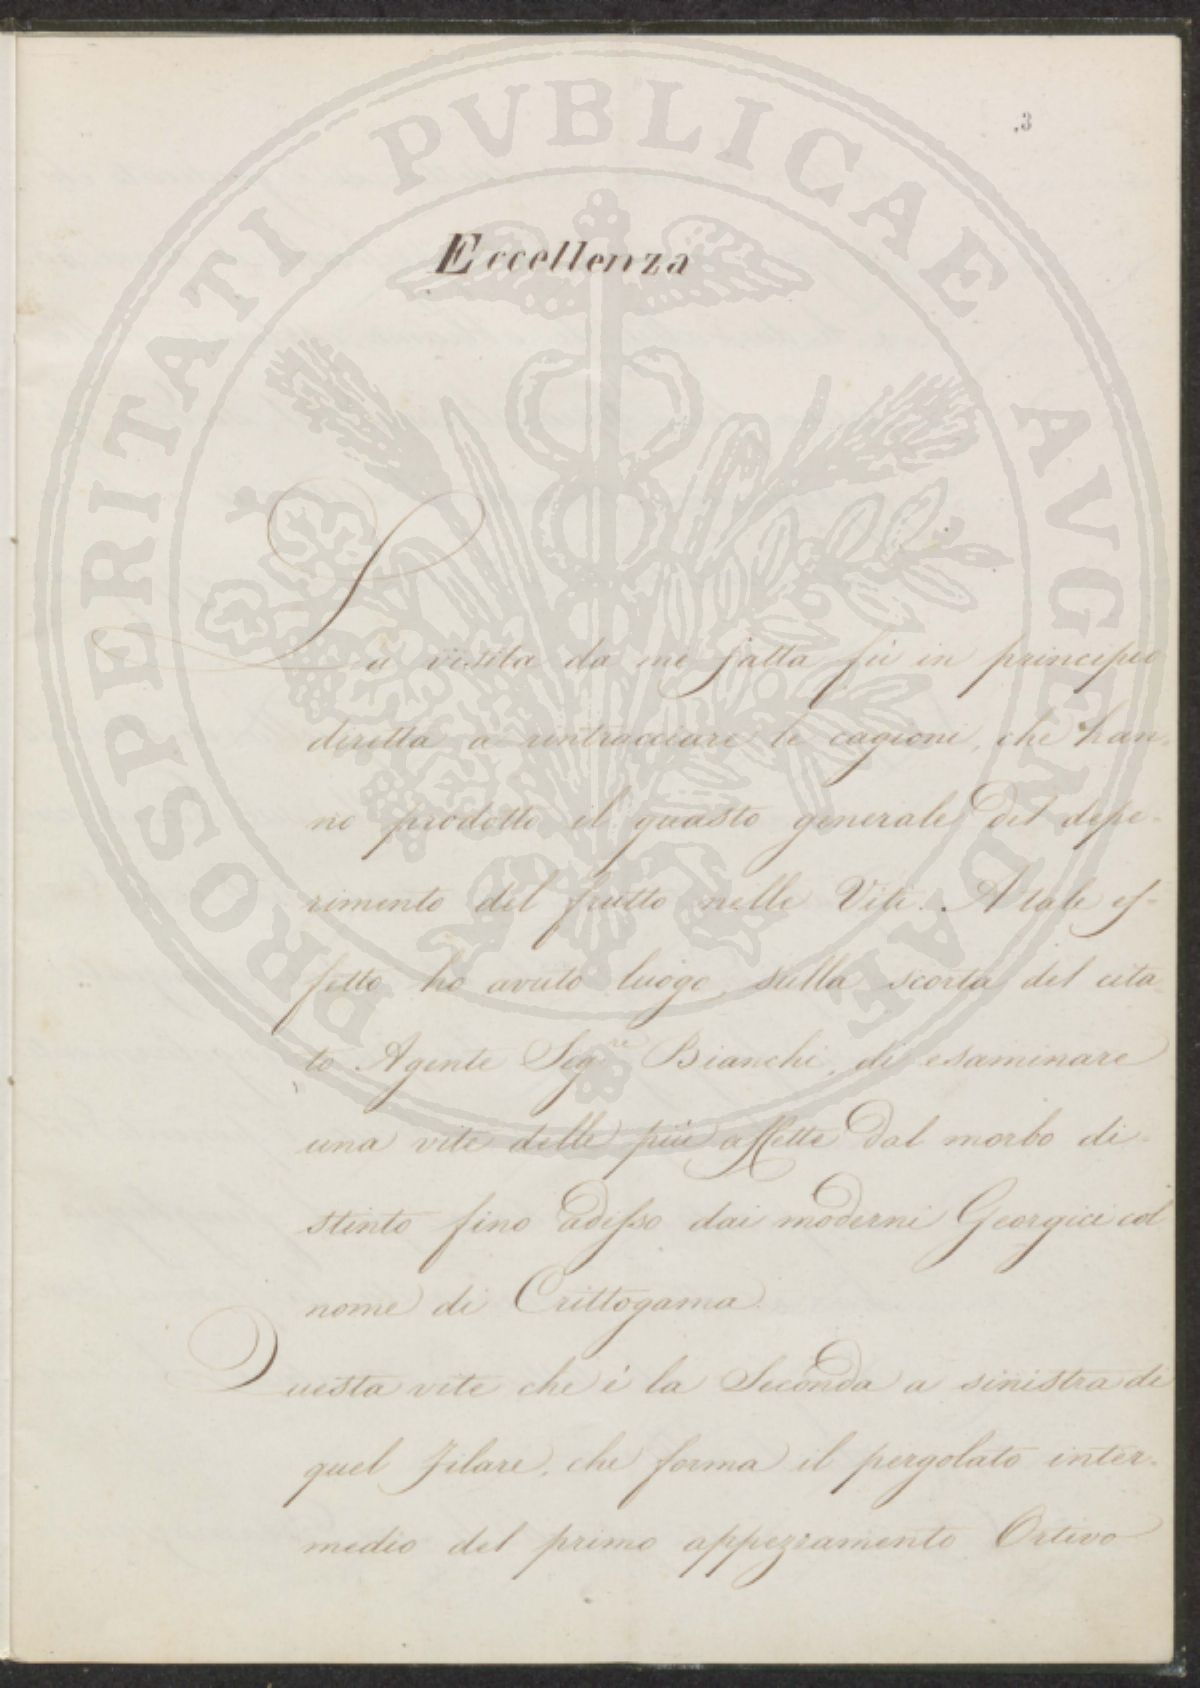 .3
PROSPERITATI PVBLICAE AVGENDAE
Eccellenza
La visita da me fatta fù in principio
diretta a rintracciare le cagioni, che han-
no prodotto il guasto generale del depe-
rimento del frutto nelle Viti. A tale ef-
fetto ho avuto luogo, sulla scorta del cita-
to Agente Sigre Bianchi, di esaminare
una vite delle più affette dal morbo di-
stinto fino adesso dai moderni Georgici col
nome di Crittogama.
Questa vite che è la Seconda a sinistra di
quel Filare, che forma il pergolato inter-
medio del primo appezzamento Ortivo